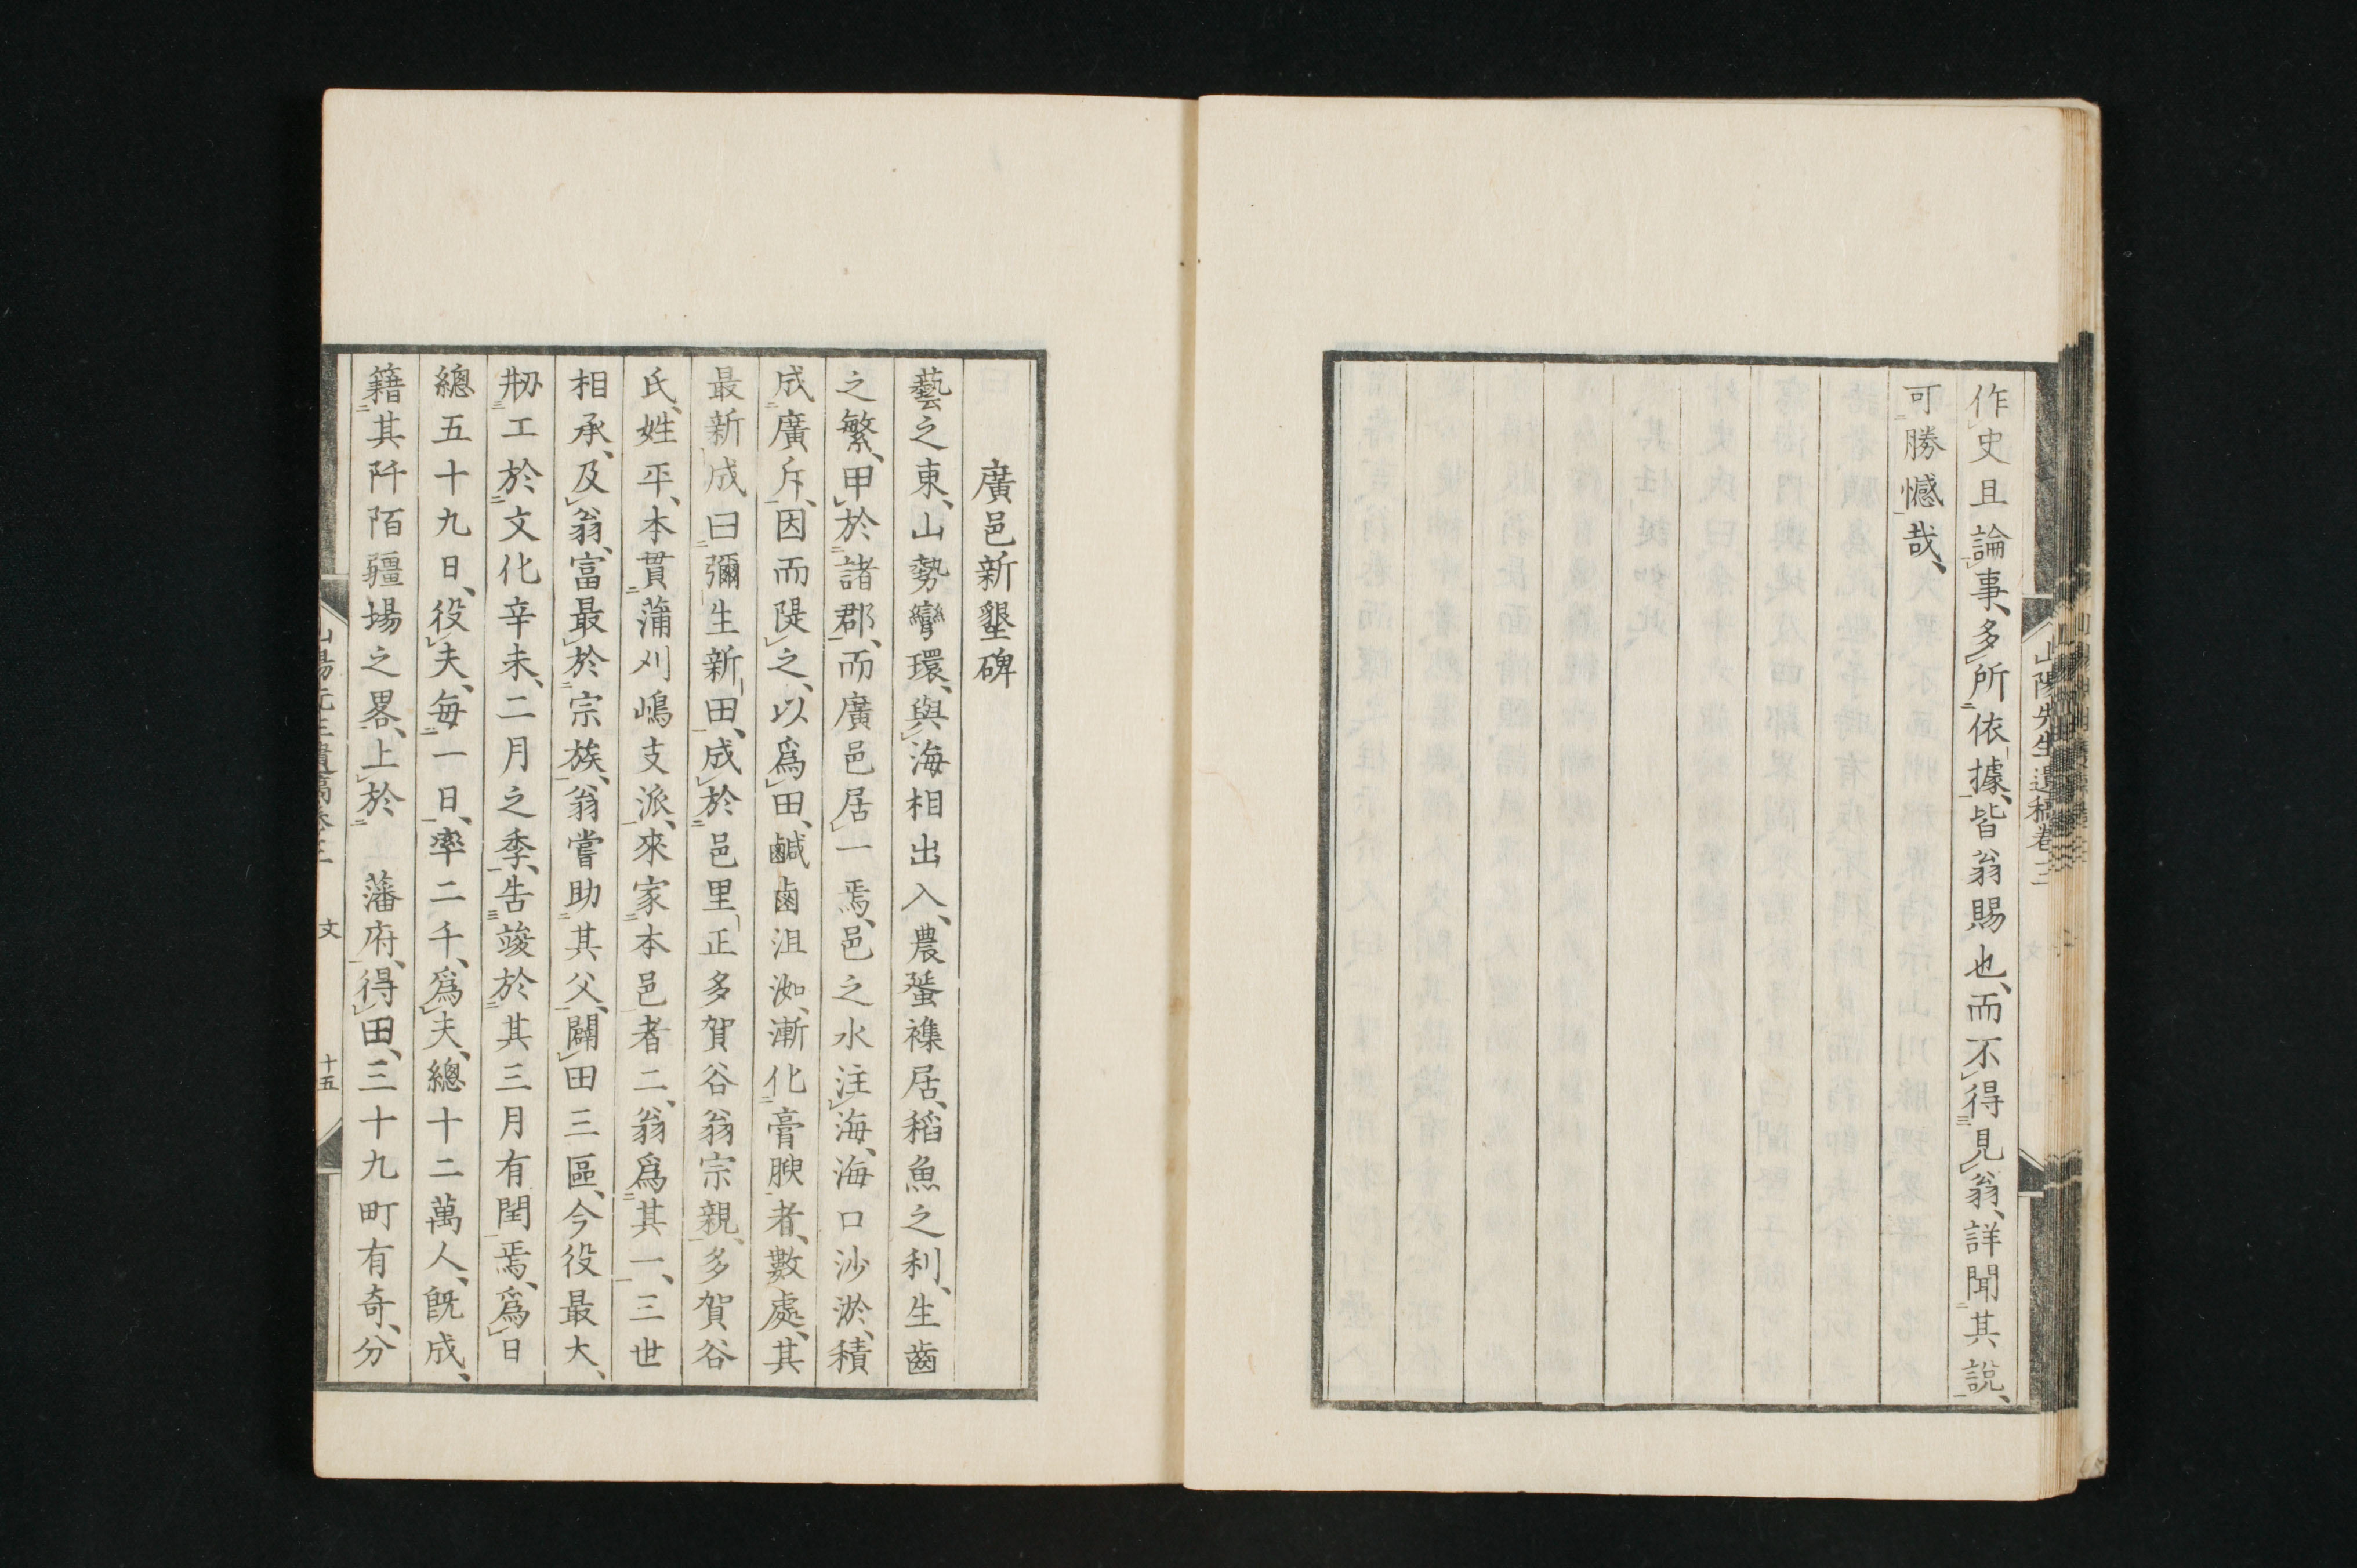 作史且論事、多所依據、皆翁賜也、而不得見翁、詳聞其說、
可勝憾哉、
山陽先生遺稿卷三
廣邑新墾碑
藝之東、山勢彎環、與海相出入、農蜑襍居、稻魚之利、生齒
之繁、甲於諸郡、而廣邑居一焉、邑之水注海、海口沙淤、積
成廣斥、因而隄之、以爲田、鹹鹵沮洳、漸化膏腴者、數處、其
最新成曰彌生新田、成於邑里正多賀谷翁宗親、多賀谷
氏、姓平、本貫蒲刈嶋支派、來家本邑者二、翁爲其一、三世
相承、及翁、富最於宗族、翁嘗助其父、闢田三區、今役最大、
刱工於文化辛未、二月之季、告竣於其三月有閏焉、爲日
總五十九日、役夫、每一日、率二千、爲夫、總十二萬人、旣成、
籍其阡陌疆場之畧、上於 藩府、得田、三十九町有奇、分
山陽先生遺稿卷三 文 十五